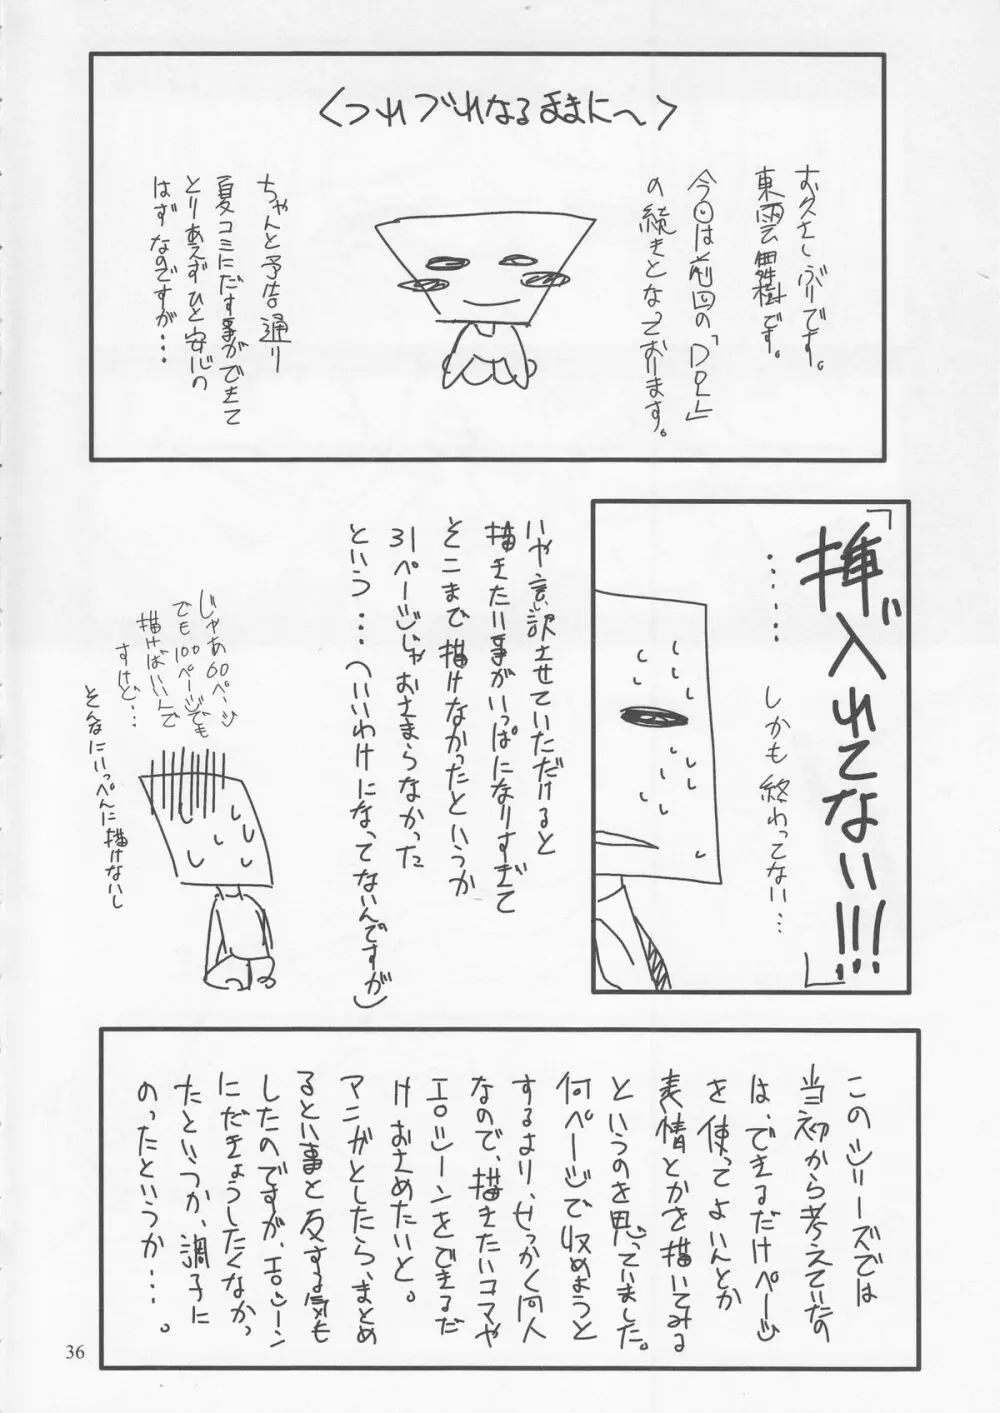 くつれづれなるままに〜>
お久しぶりです。
東雲舞樹です。
今回は前回の「DOL」
の続きとなっております。
ちゃんと予告通り
夏コミにだす事ができて
とりあえずひと安心の
はずなのですが・・・
「挿入れてない!!!」
・・・・・・しかも終わってない…
いや言訳させていただけると
描きたい事がいっぱになりすぎて
そこまで描けなかったというか
31ページじゃおさまらなかった
という・・・(いいわけになってないんですが)
じゃあ60ページ
でも100ページでも
描けばいいんで
すけど・・・
そんなにいっぺんに描けないし
このシリーズでは
当初から考えていたの
は、できるだけページ
を使ってよいんとか
表情とかを描いてみる
というのを思っていました。
何ページで収めようと
するより、せっかく同人
なので、描きたいコマや
エロシーンをできるだ
けおさめたいと。
マンガとしたら、まとめ
るとい事と反する気も
したのですが、エロシーン
にだきょうしたくなかっ
たというか、調子に
のったというか・・・。
36